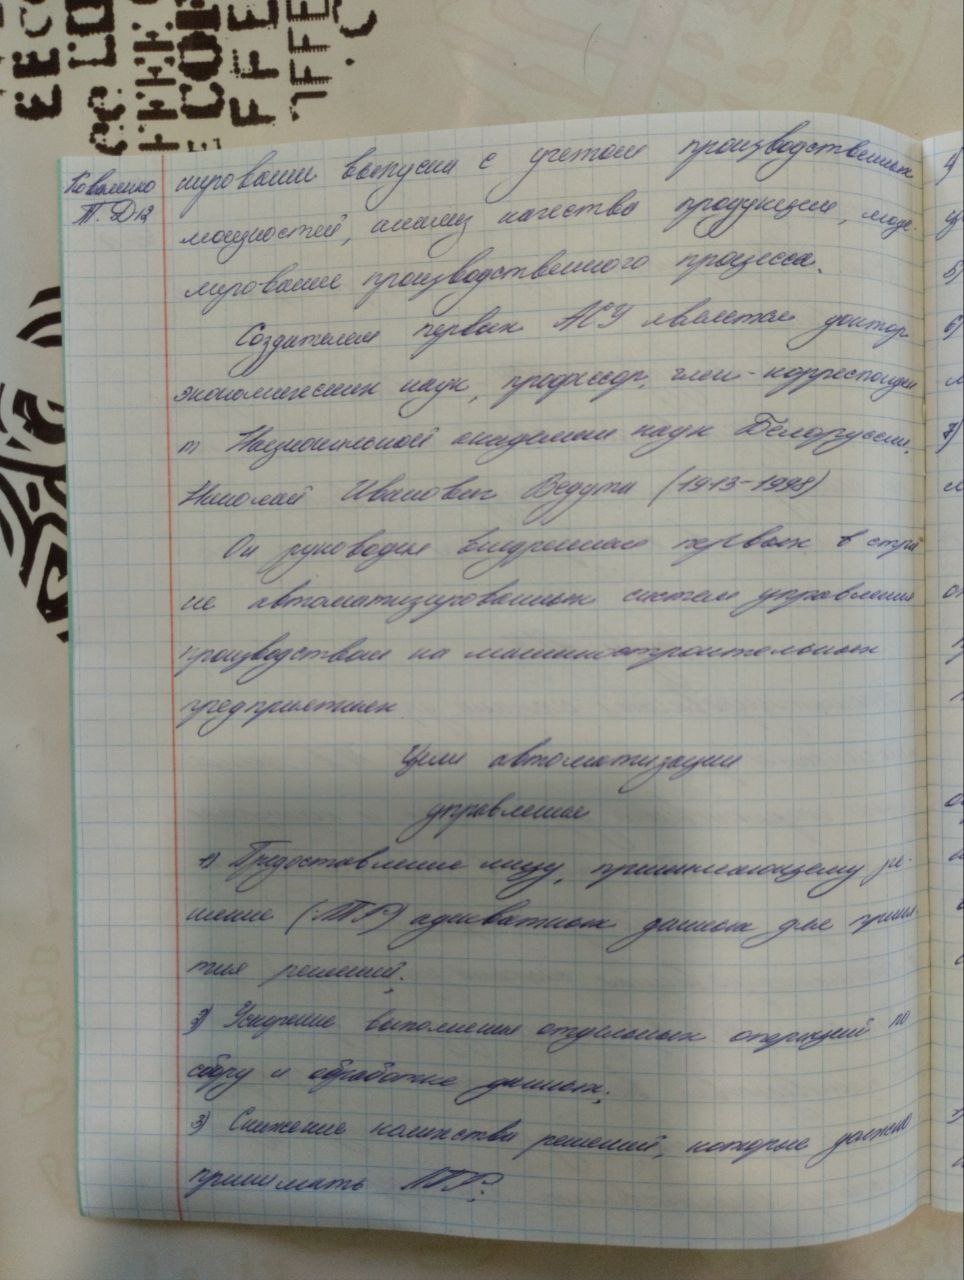 Коваленко
Т. Д12
нировании выпуска с учетом производственных
мощностей, анализ качества продукции, моде-
лирование производственного процесса.
Создателем первых АСУ является доктор
экономических наук, профессор, член-корреспонден
т Национальной академии наук Белоруссии,
Николай Иванович Ведута (1913-1998)
Он руководил внедрением первых в стра
не автоматизированных систем управления
производством на машиностроительных
предприятиях
Цели автоматизации
управления
1) Предоставление лицу, принимающему ре-
шение (ЛПР) адекватных данных для приня
тия решений;
2) Ускорение выполнения отдельных операций по
сбору и обработке данных;
3) Снижение количества решений, которые должно
принимать ЛПР;